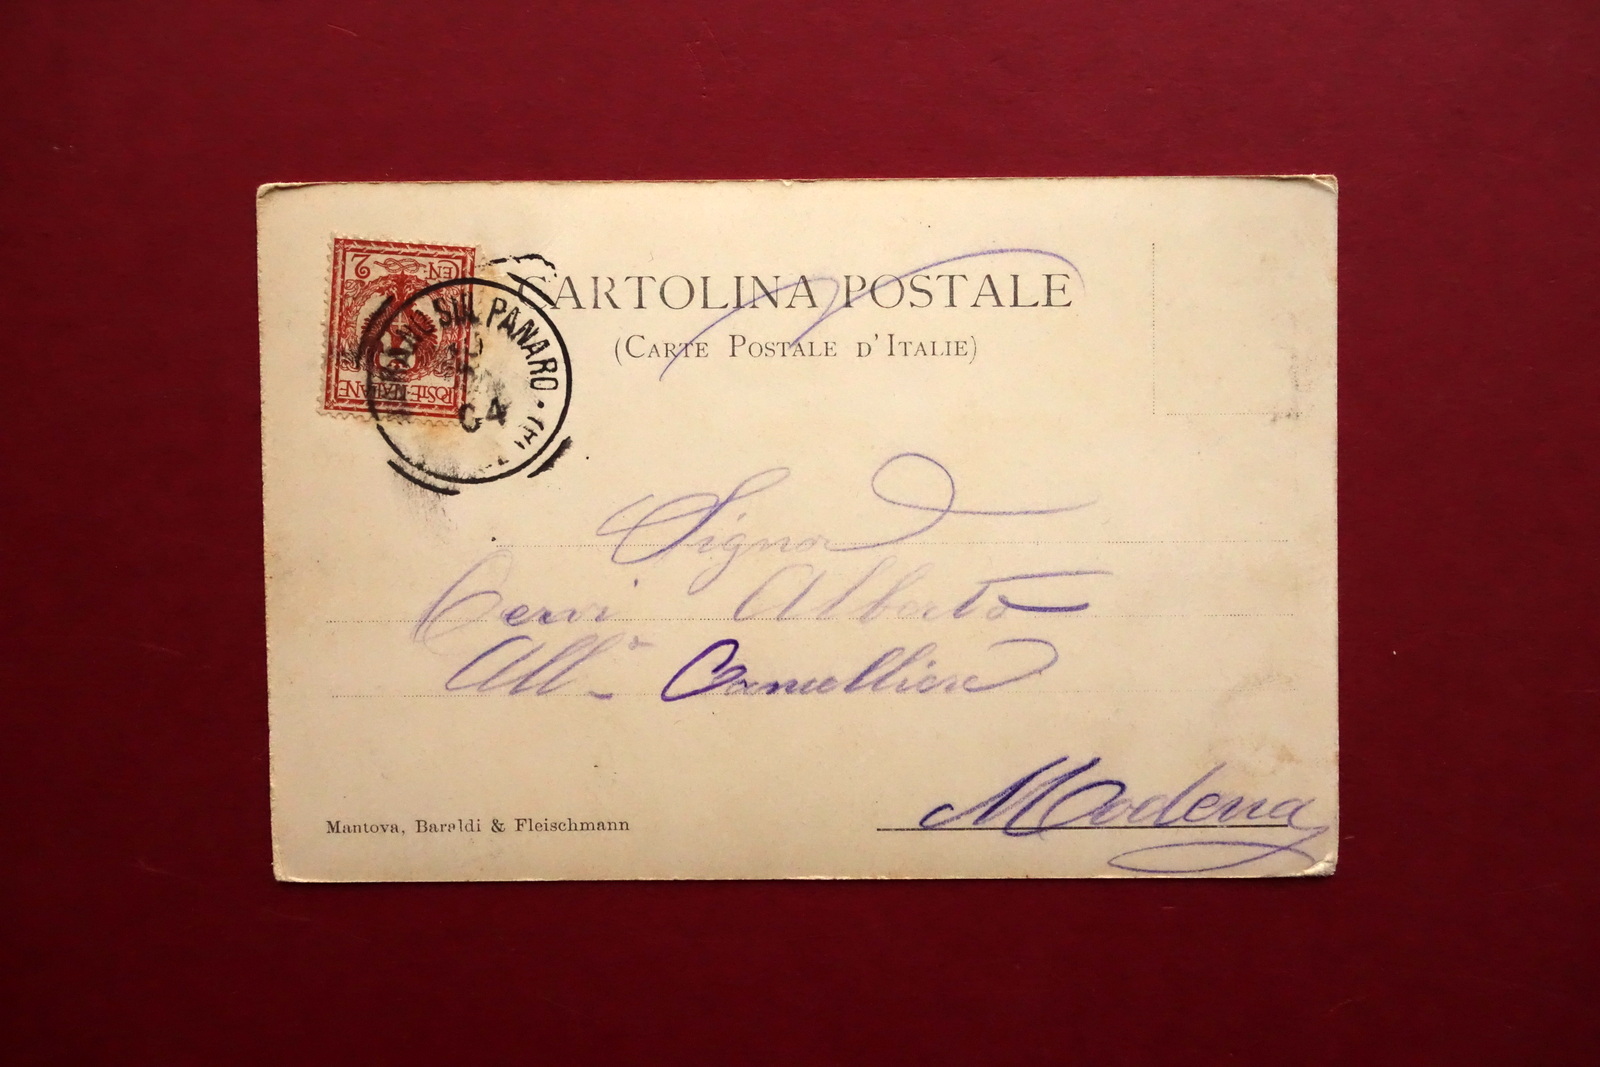 CEN. 2
POSTE ITALIANE
SUL PANARO
04
CARTOLINA POSTALE
(CARTE POSTALE D'ITALIE)
Signor
Cervi Alberto
All.o Cancelliere
Modena
Mantova, Baraldi & Fleischmann